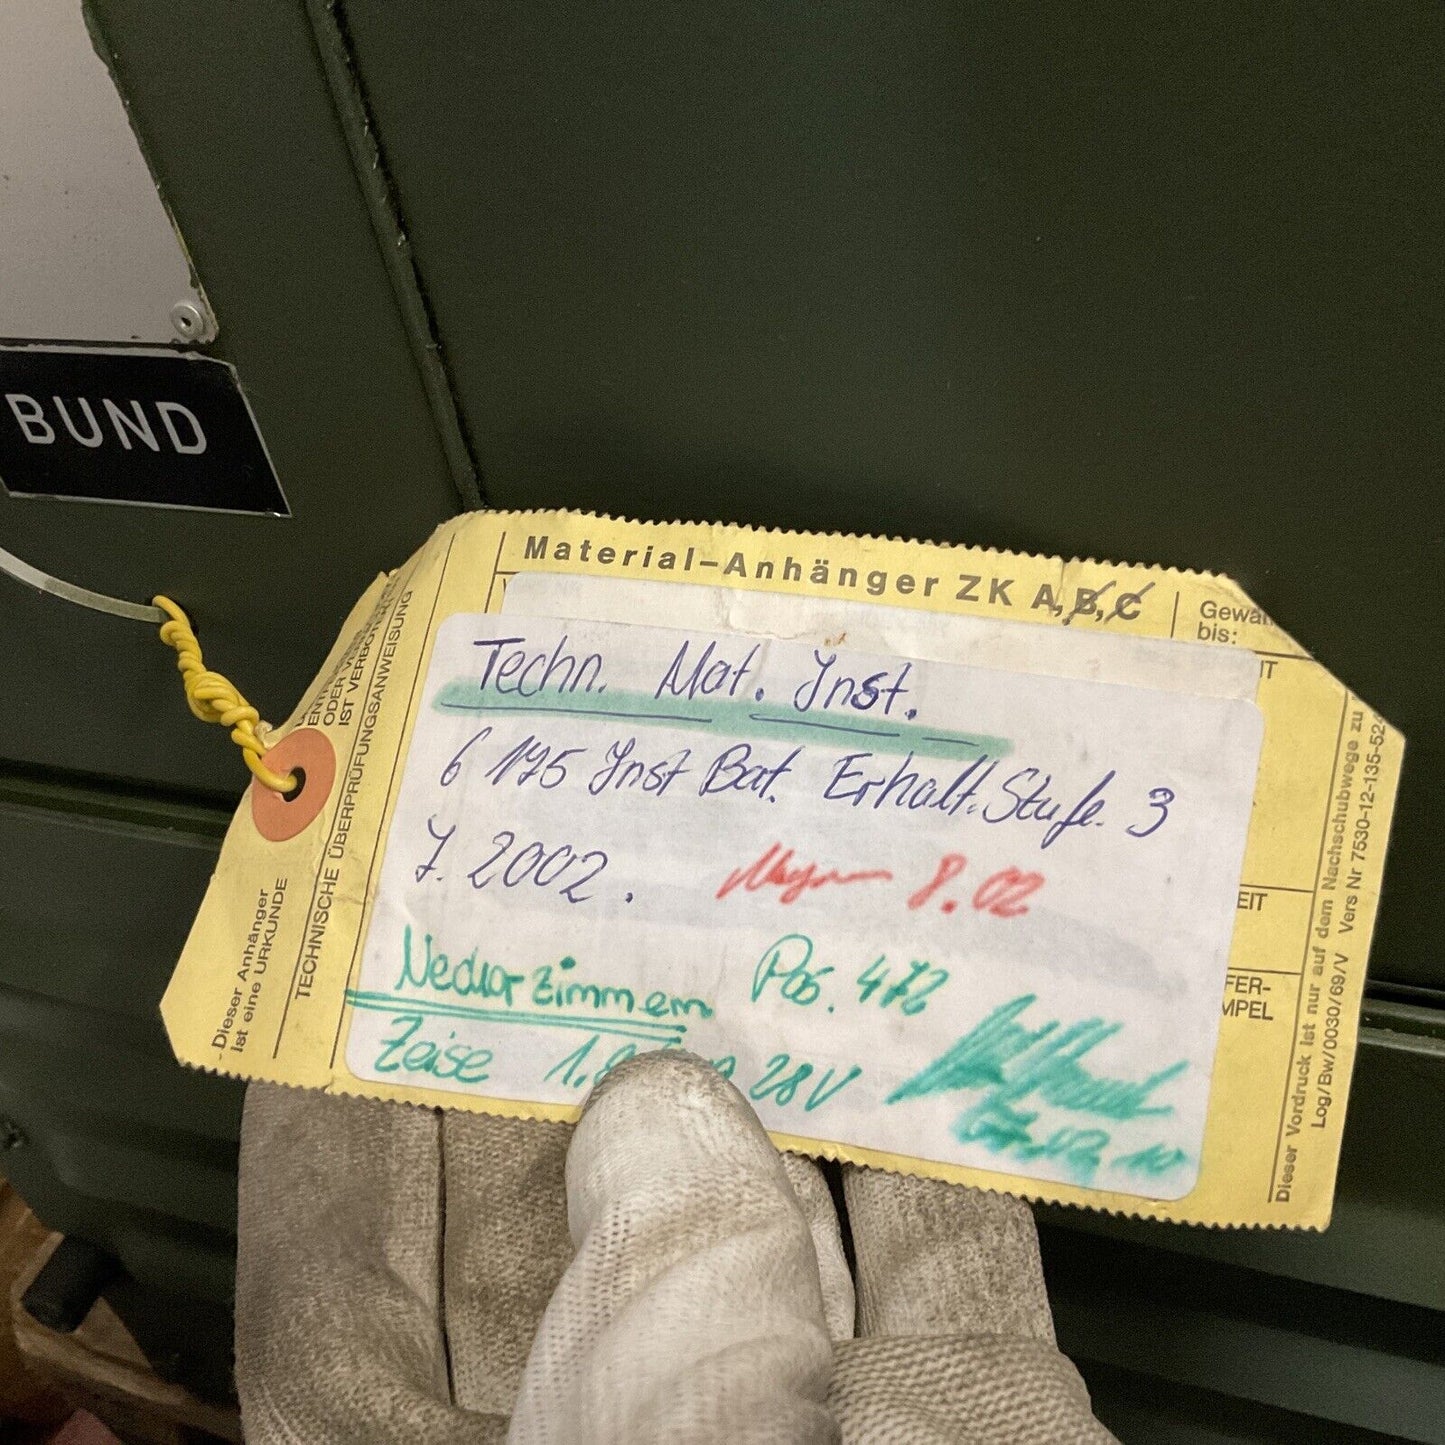 BUND
Material-Anhänger ZK A, B, C
bis:
Techn. Mat. Inst.
6 175 Inst Bat. Erhalt. Stufe. 3
7. 2002. 8.02
Neckarzimmern Pos. 472
Zeise 28V
IST VERBOTEN
TECHNISCHE ÜBERPRÜFUNGSANWEISUNG
- Dieser Anhänger
ist eine URKUNDE
EIT
FER-
MPEL
Dieser Vordruck ist nur auf dem Nachschubwege zu
Log/Bw/0030/69/V Vers Nr 7530-12-135-524